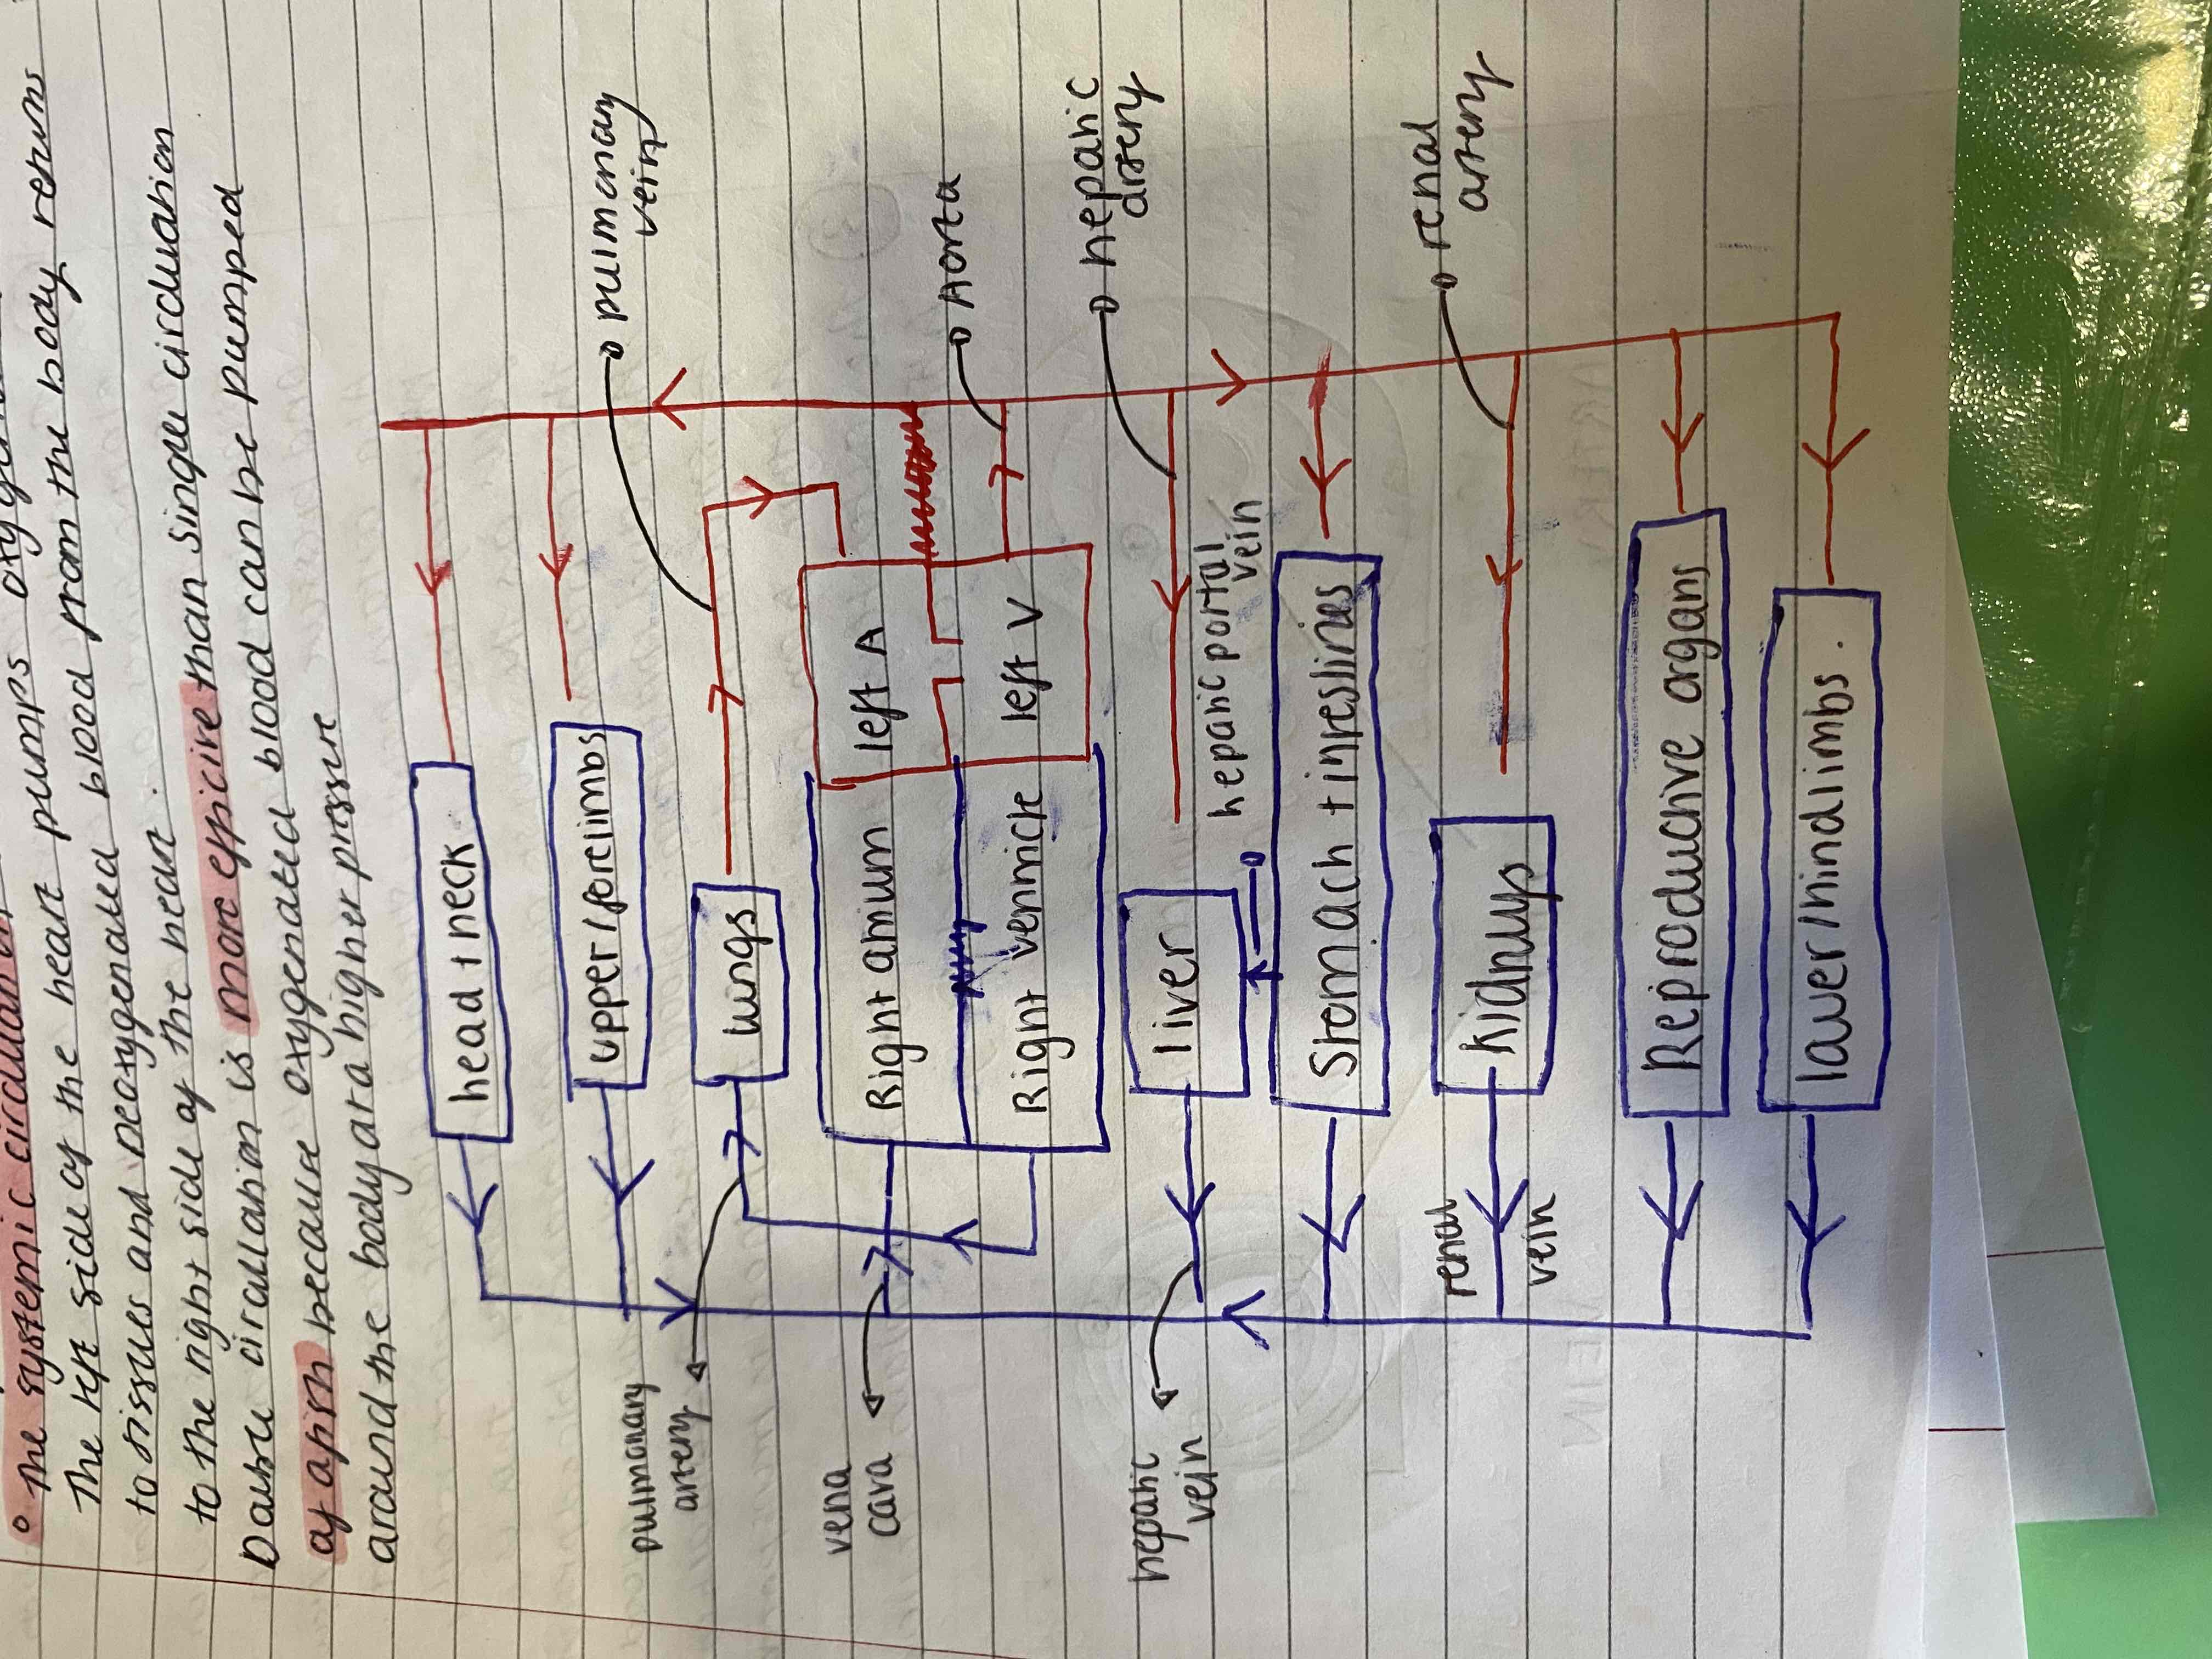 The systemic circulation
The left side of the heart pumps
to tissues and deoxygenated blood from the body returns
to the right side of the heart.
Double circulation is more efficient than single circulation
of a fish because oxygenated blood can be pumped
around the body at a higher pressure
head + neck
upper/forelimbs
pulmonary vein
lungs
pulmonary artery
Right atrium
left A
vena cava
Aorta
Right ventricle
left V
hepatic artery
liver
hepatic vein
hepatic portal vein
Stomach + intestines
renal artery
kidneys
renal vein
Reproductive organs
lower/hindlimbs.